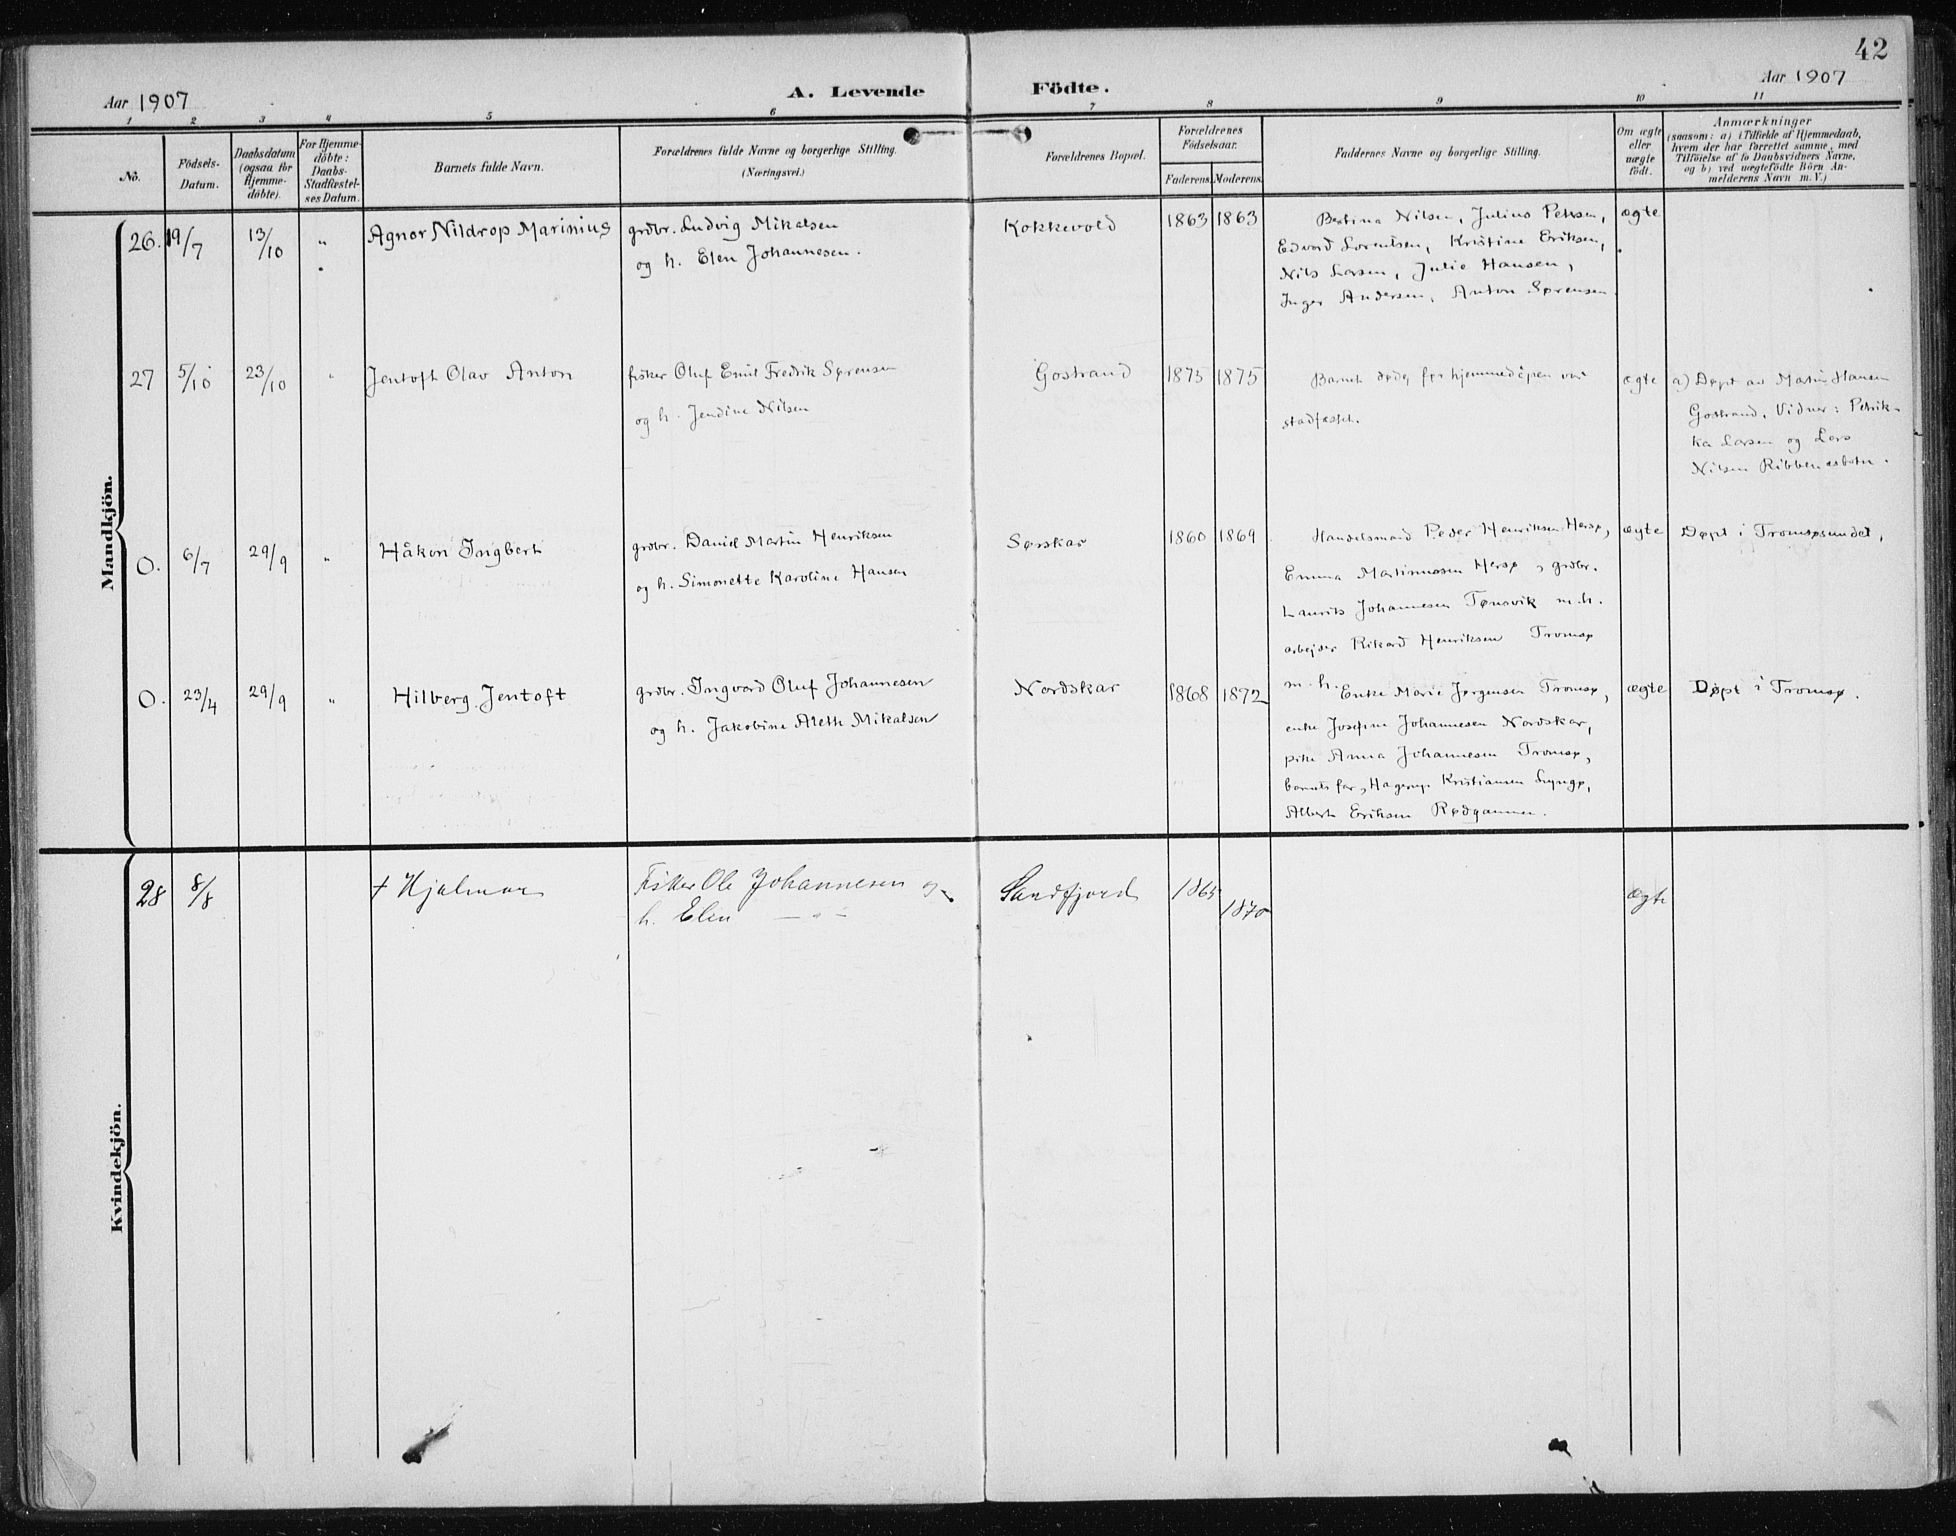 42
Aar 1907
A. Levende Födte.
Aar 1907
1 2 3 4 5 6 7 8 9 10 11
No.
Födsels-
Datum.
Daabsdatum
(ogsaa for
Hjemme-
döbte).
For Hjemme-
döbte:
Daabs-
Stadfæstel-
ses Datum.
Barnets fulde Navn.
Forældrenes fulde Navne og borgerlige Stilling.
(Næringsvei.)
Forældrenes Bopæl.
Forældrenes
Födselsaar.
Faderens. Moderens.
Faddernes Navne og borgerlige Stilling.
Om ægte
eller
uægte
födt.
Anmærkninger
(saasom: a) i Tilfælde af Hjemmedaab,
hvem der har forrettet samme, med
Tilföielse af to Daabsvidners Navne,
og b) ved uægtefödte Börn An-
melderens Navn m. V.)
Mandkjön.
26. 19/7 13/10 "
Agnor Nildrop Marinius
grdbr. Ludvig Mikalsen
og h. Elen Johannesen.
Kokkevold
1863 1863
Bertina Nilsen, Julius Petersen,
Edvard Lorentsen, Kristine Eriksen,
Nils Larsen, Julie Hansen,
Inger Andersen, Anton Sørensen
ægte
27 5/10 23/10 "
Jentoft Olav Anton
fisker Oluf Emil Fredrik Sørensen
og h. Jendine Nilsen
Gostrand
1875 1875
Barnet døde før hjemmedåpen var
stadfæstet.
ægte
a) Døpt av Martin Hansen
Gostrand. Vidner: Petrik-
ka Larsen og Lars
Nilsen Ribbenesbotn.
O. 6/7 29/9 "
Håkon Ingbert
grdbr. Daniel Martin Henriksen
og h. Simonette Karoline Hansen
Sørskar
1860 1869
Handelsmand Peder Henriksen Hersø,
Emma Martinussen Hersø, grdbr.
Laurits Johannesen Tønsvik m.h.
arbejder Rikard Henriksen Tromsø
m.h.
ægte
Døpt i Tromsøsundet,
O. 23/4 29/9 "
Hilberg Jentoft
grdbr. Ingvard Oluf Johannesen
og h. Jakobine Aleth Mikalsen
Nordskar
1868 1872
Enke Marie Jørgensen Tromsø,
enke Josefine Johannesen Nordskar,
pike Anna Johannesen Tromsø,
barnets far, Hagerup Kristiansen Lyngø,
Albert Eriksen Rødgammen.
ægte
Døpt i Tromsø.
Kvindekjön.
28 8/8
† Hjalmar
Fisker Ole Johannesen og
h. Elen — " —
Sandfjord
1865 1870
ægte